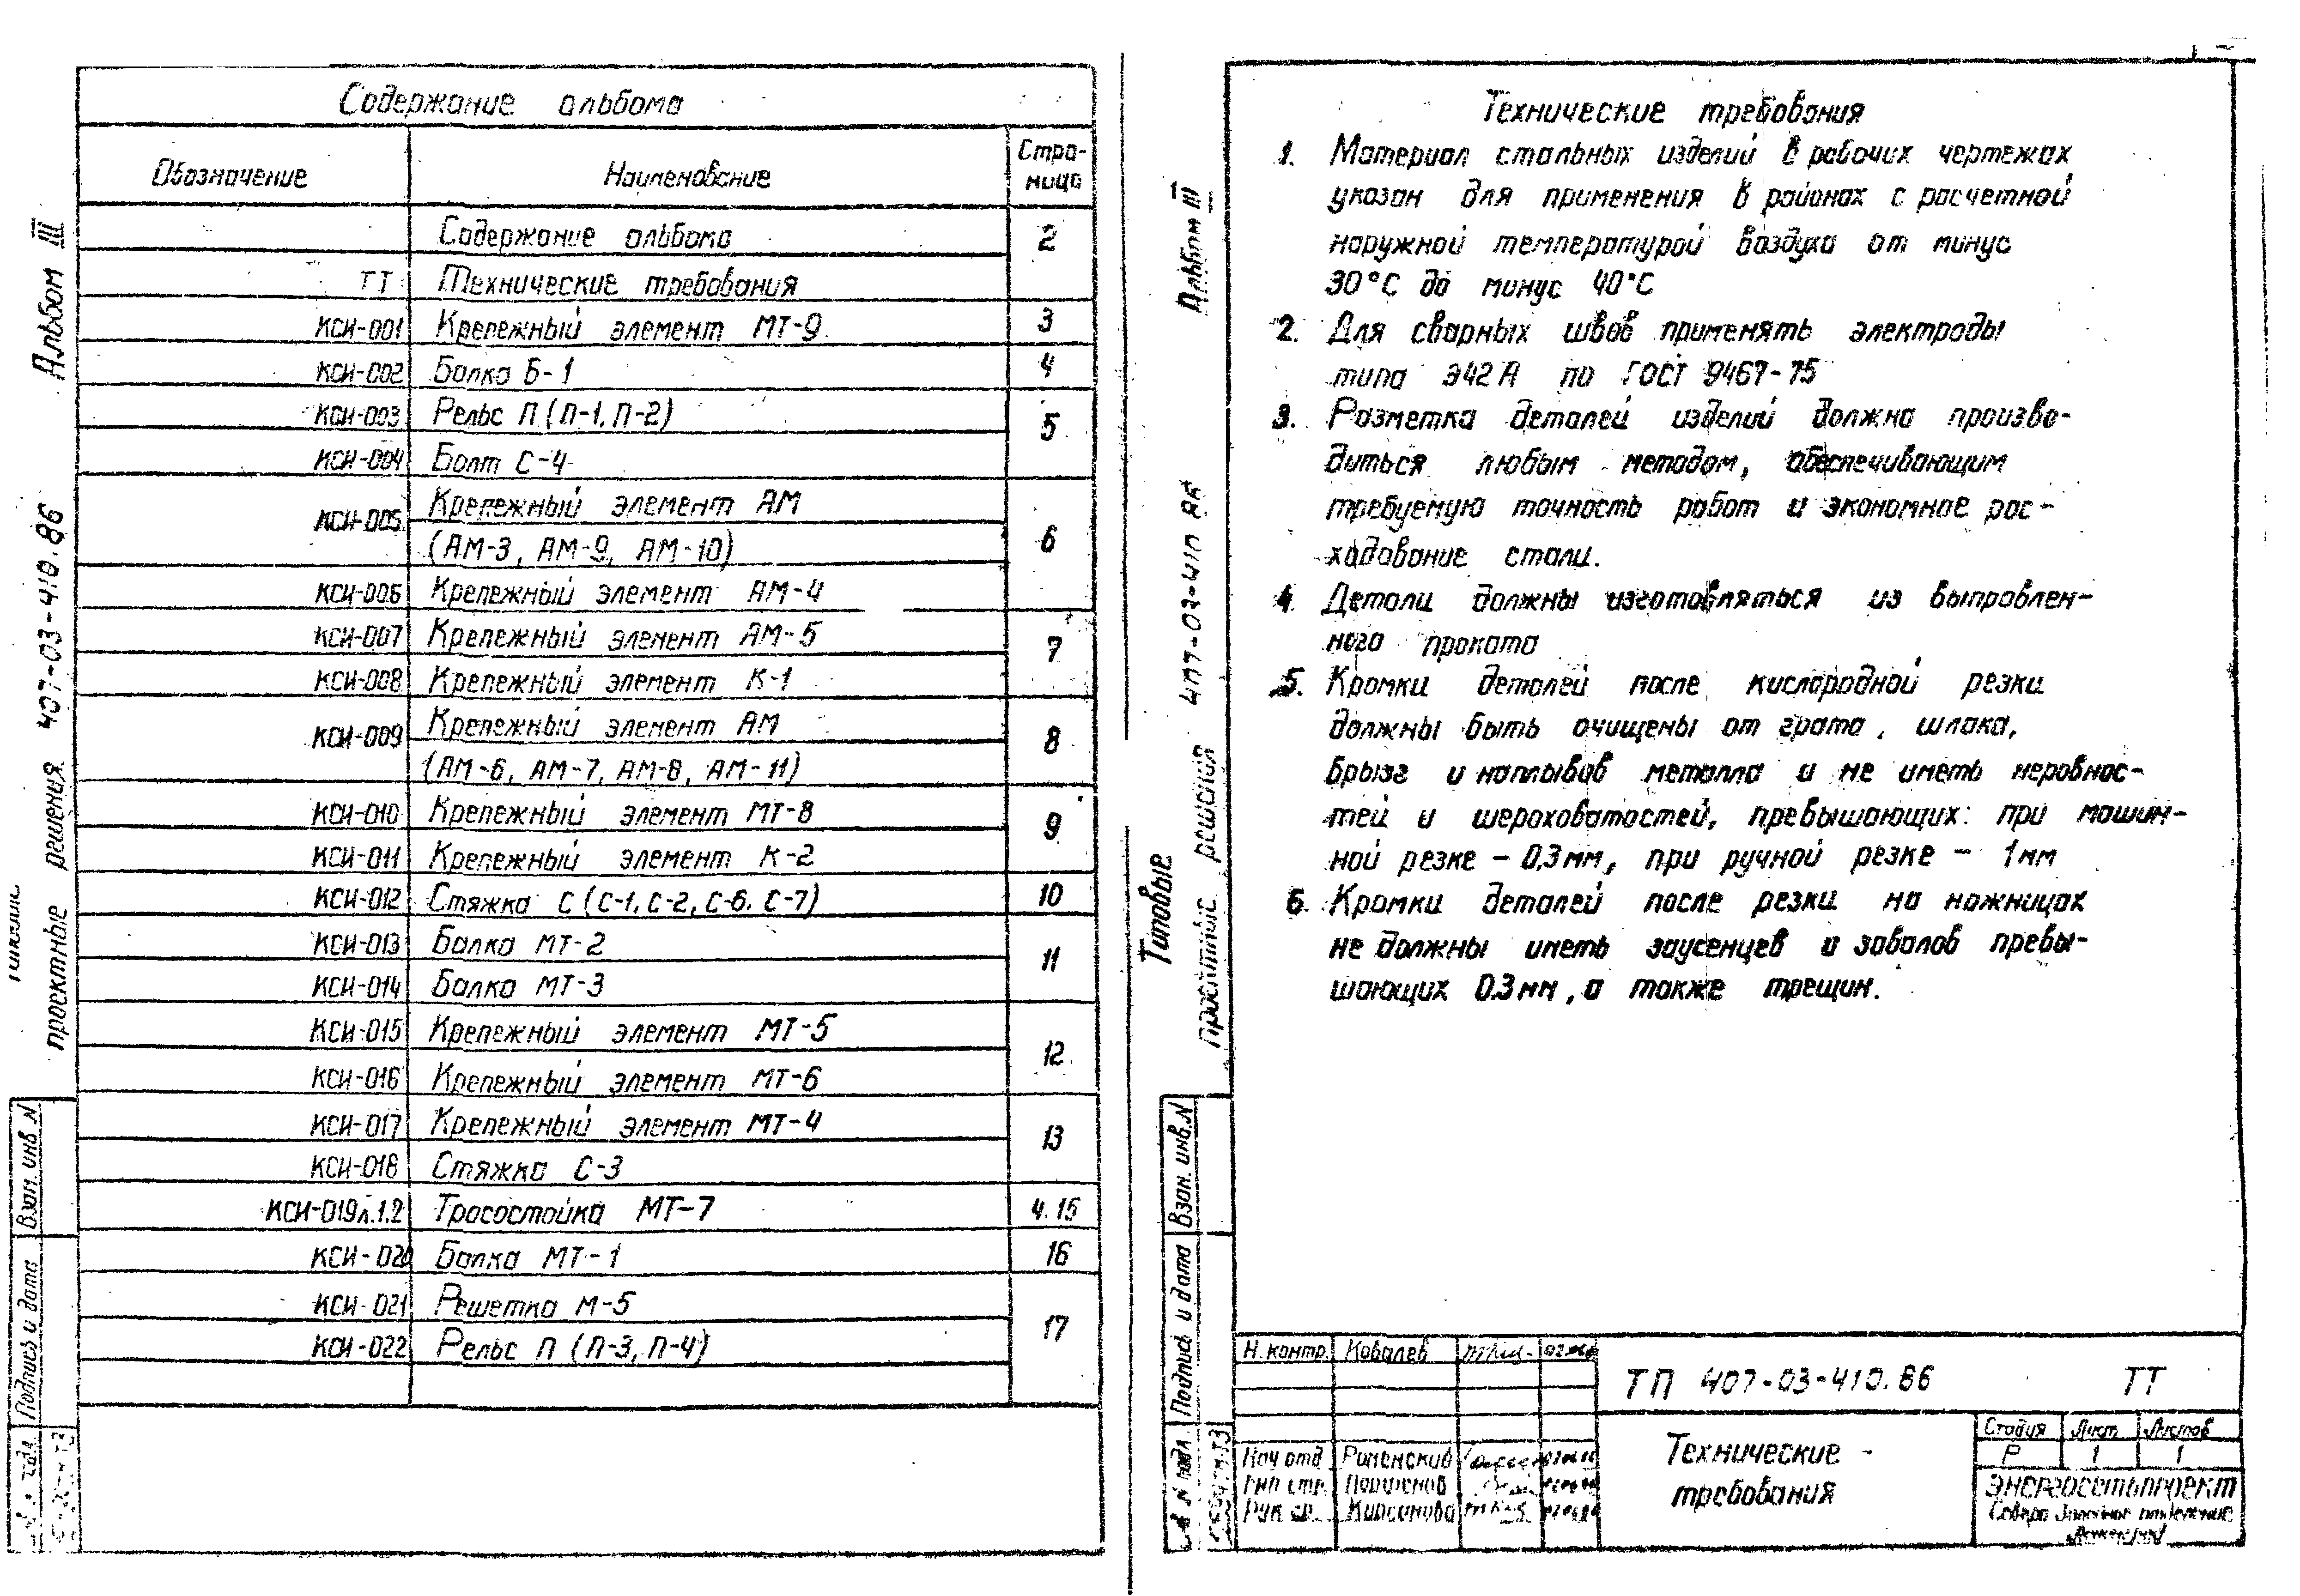 Содержание альбома
Обозначение Наименование Стра-
ница
Содержание альбома 2
ТТ Технические требования
КСИ-001 Крепежный элемент МТ-9 3
КСИ-002 Балка Б-1 4
КСИ-003 Рельс П (П-1, П-2) 5
КСИ-004 Болт С-4
КСИ-005 Крепежный элемент АМ 6
(АМ-3, АМ-9, АМ-10)
КСИ-006 Крепежный элемент АМ-4
КСИ-007 Крепежный элемент АМ-5 7
КСИ-008 Крепежный элемент К-1
КСИ-009 Крепежный элемент АМ 8
(АМ-6, АМ-7, АМ-8, АМ-11)
КСИ-010 Крепежный элемент МТ-8 9
КСИ-011 Крепежный элемент К-2
КСИ-012 Стяжка С (С-1, С-2, С-6, С-7) 10
КСИ-013 Балка МТ-2 11
КСИ-014 Балка МТ-3
КСИ-015 Крепежный элемент МТ-5 12
КСИ-016 Крепежный элемент МТ-6
КСИ-017 Крепежный элемент МТ-4 13
КСИ-018 Стяжка С-3
КСИ-019л.1.2 Тросостойка МТ-7 4.15
КСИ-020 Балка МТ-1 16
КСИ-021 Решетка М-5 17
КСИ-022 Рельс П (П-3, П-4)
Альбом III
проектные решения 407-03-410.86
Взам. инв. N
Подпись и дата
Технические требования
1. Материал стальных изделий в рабочих чертежах
указан для применения в районах с расчетной
наружной температурой воздуха от минус
30°С до минус 40°С
2. Для сварных швов применять электроды
типа Э42А по ГОСТ 9467-75
3. Разметка деталей изделий должна произво-
диться любым методом, обеспечивающим
требуемую точность работ и экономное рас-
ходование стали.
4 Детали должны изготовляться из выправлен-
ного проката
5. Кромки деталей после кислородной резки
должны быть очищены от грата, шлака,
брызг и наплывов металла и не иметь неровнос-
тей и шероховатостей, превышающих: при машин-
ной резке - 0,3мм, при ручной резке - 1мм
6 Кромки деталей после резки на ножницах
не должны иметь заусенцев и завалов превы-
шающих 0.3мм, а также трещин.
Альбом III
Типовые
проектные решения
Взам. инв. N
Подпись и дата
N подл.
Н. контр. Ковалев
ТП 407-03-410.86 ТТ
Нач отд Роменский
Технические
требования
Стадия Лист Листов
Р 1 1
Энергосетьпроект